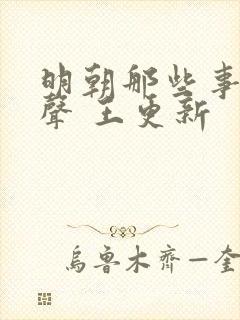 明朝那些事
聲 王更新
烏魯木齊—奎